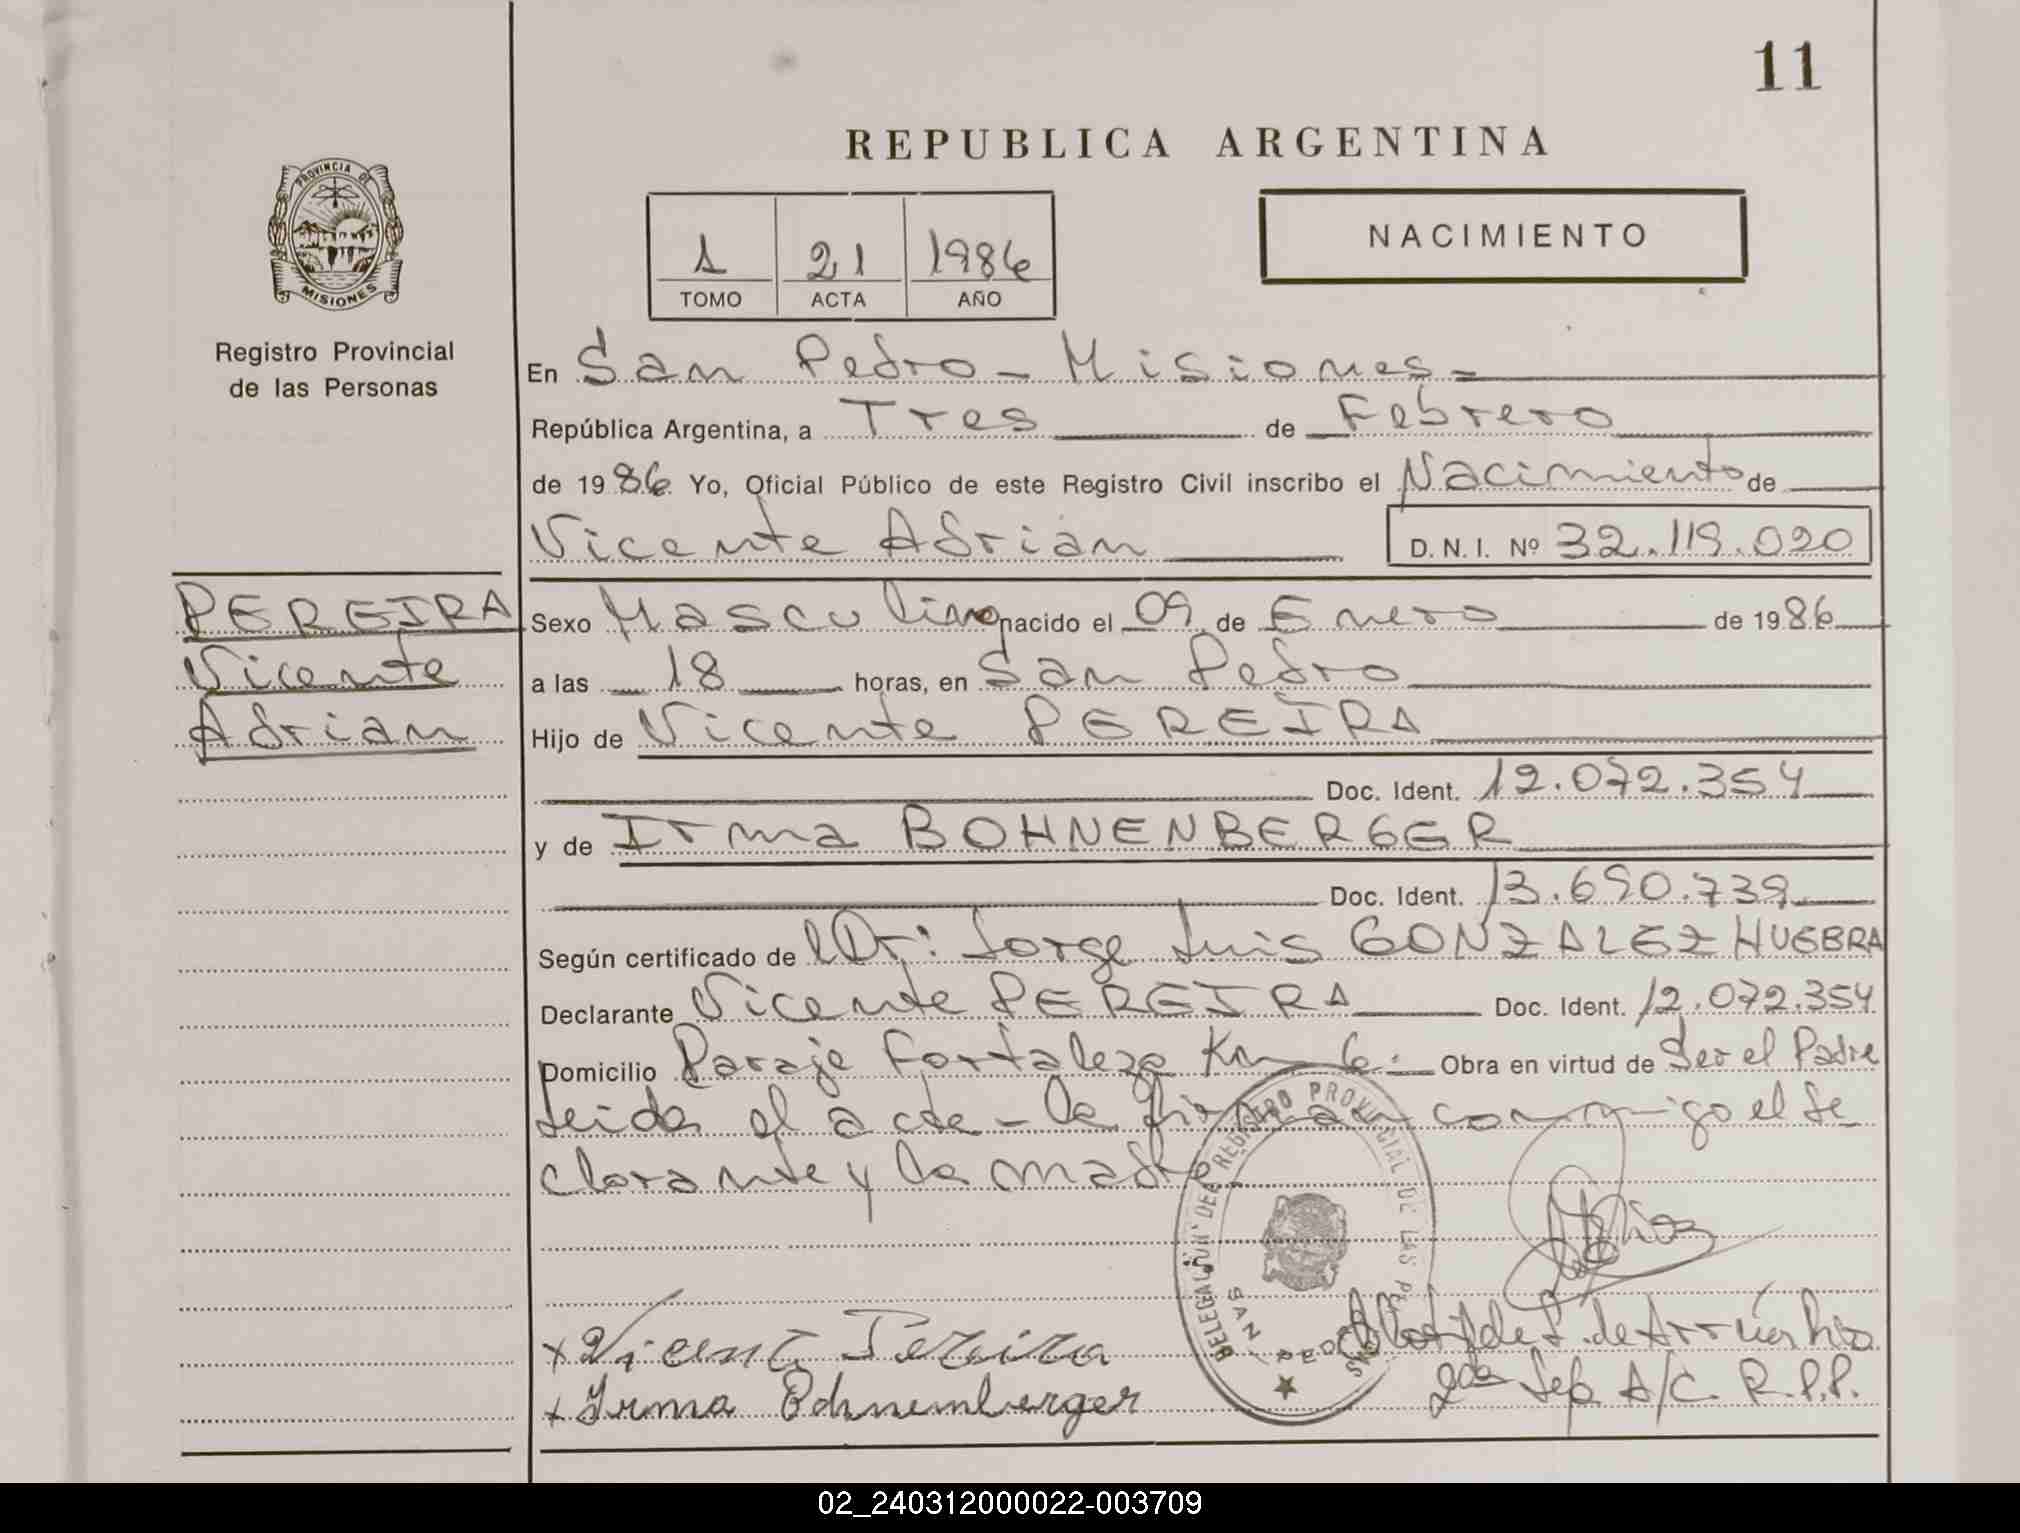 11
REPUBLICA ARGENTINA
PROVINCIA DE
MISIONES
Registro Provincial
de las Personas
1 21 1986
TOMO ACTA AÑO
NACIMIENTO
En San Pedro - Misiones -
República Argentina, a Tres de Febrero
de 1986 Yo, Oficial Público de este Registro Civil inscribo el Nacimiento de
Vicente Adrian D. N. I. Nº 32.119.020
PEREIRA
Vicente
Adrian
Sexo Masculino nacido el 09 de Enero de 1986
a las 18 horas, en San Pedro
Hijo de Vicente PEREIRA
Doc. Ident. 12.072.354
y de Irma BOHNENBERGER
Doc. Ident. 13.690.739
Según certificado de Dr: Jorge Luis GONZALEZ HUEBRA
Declarante Vicente PEREIRA Doc. Ident. 12.072.354
Domicilio Paraje Fortaleza Km 6. Obra en virtud de Ser el Padre
Leida el acta - la firman conmigo el de
clarante y la madre
DELEGACION DEL REGISTRO PROVINCIAL DE LAS
SAN PEDRO
x Vicente Pereira
x Irma Bohnemberger
de Arrúa
2da A/C. R.P.P.
02_240312000022-003709